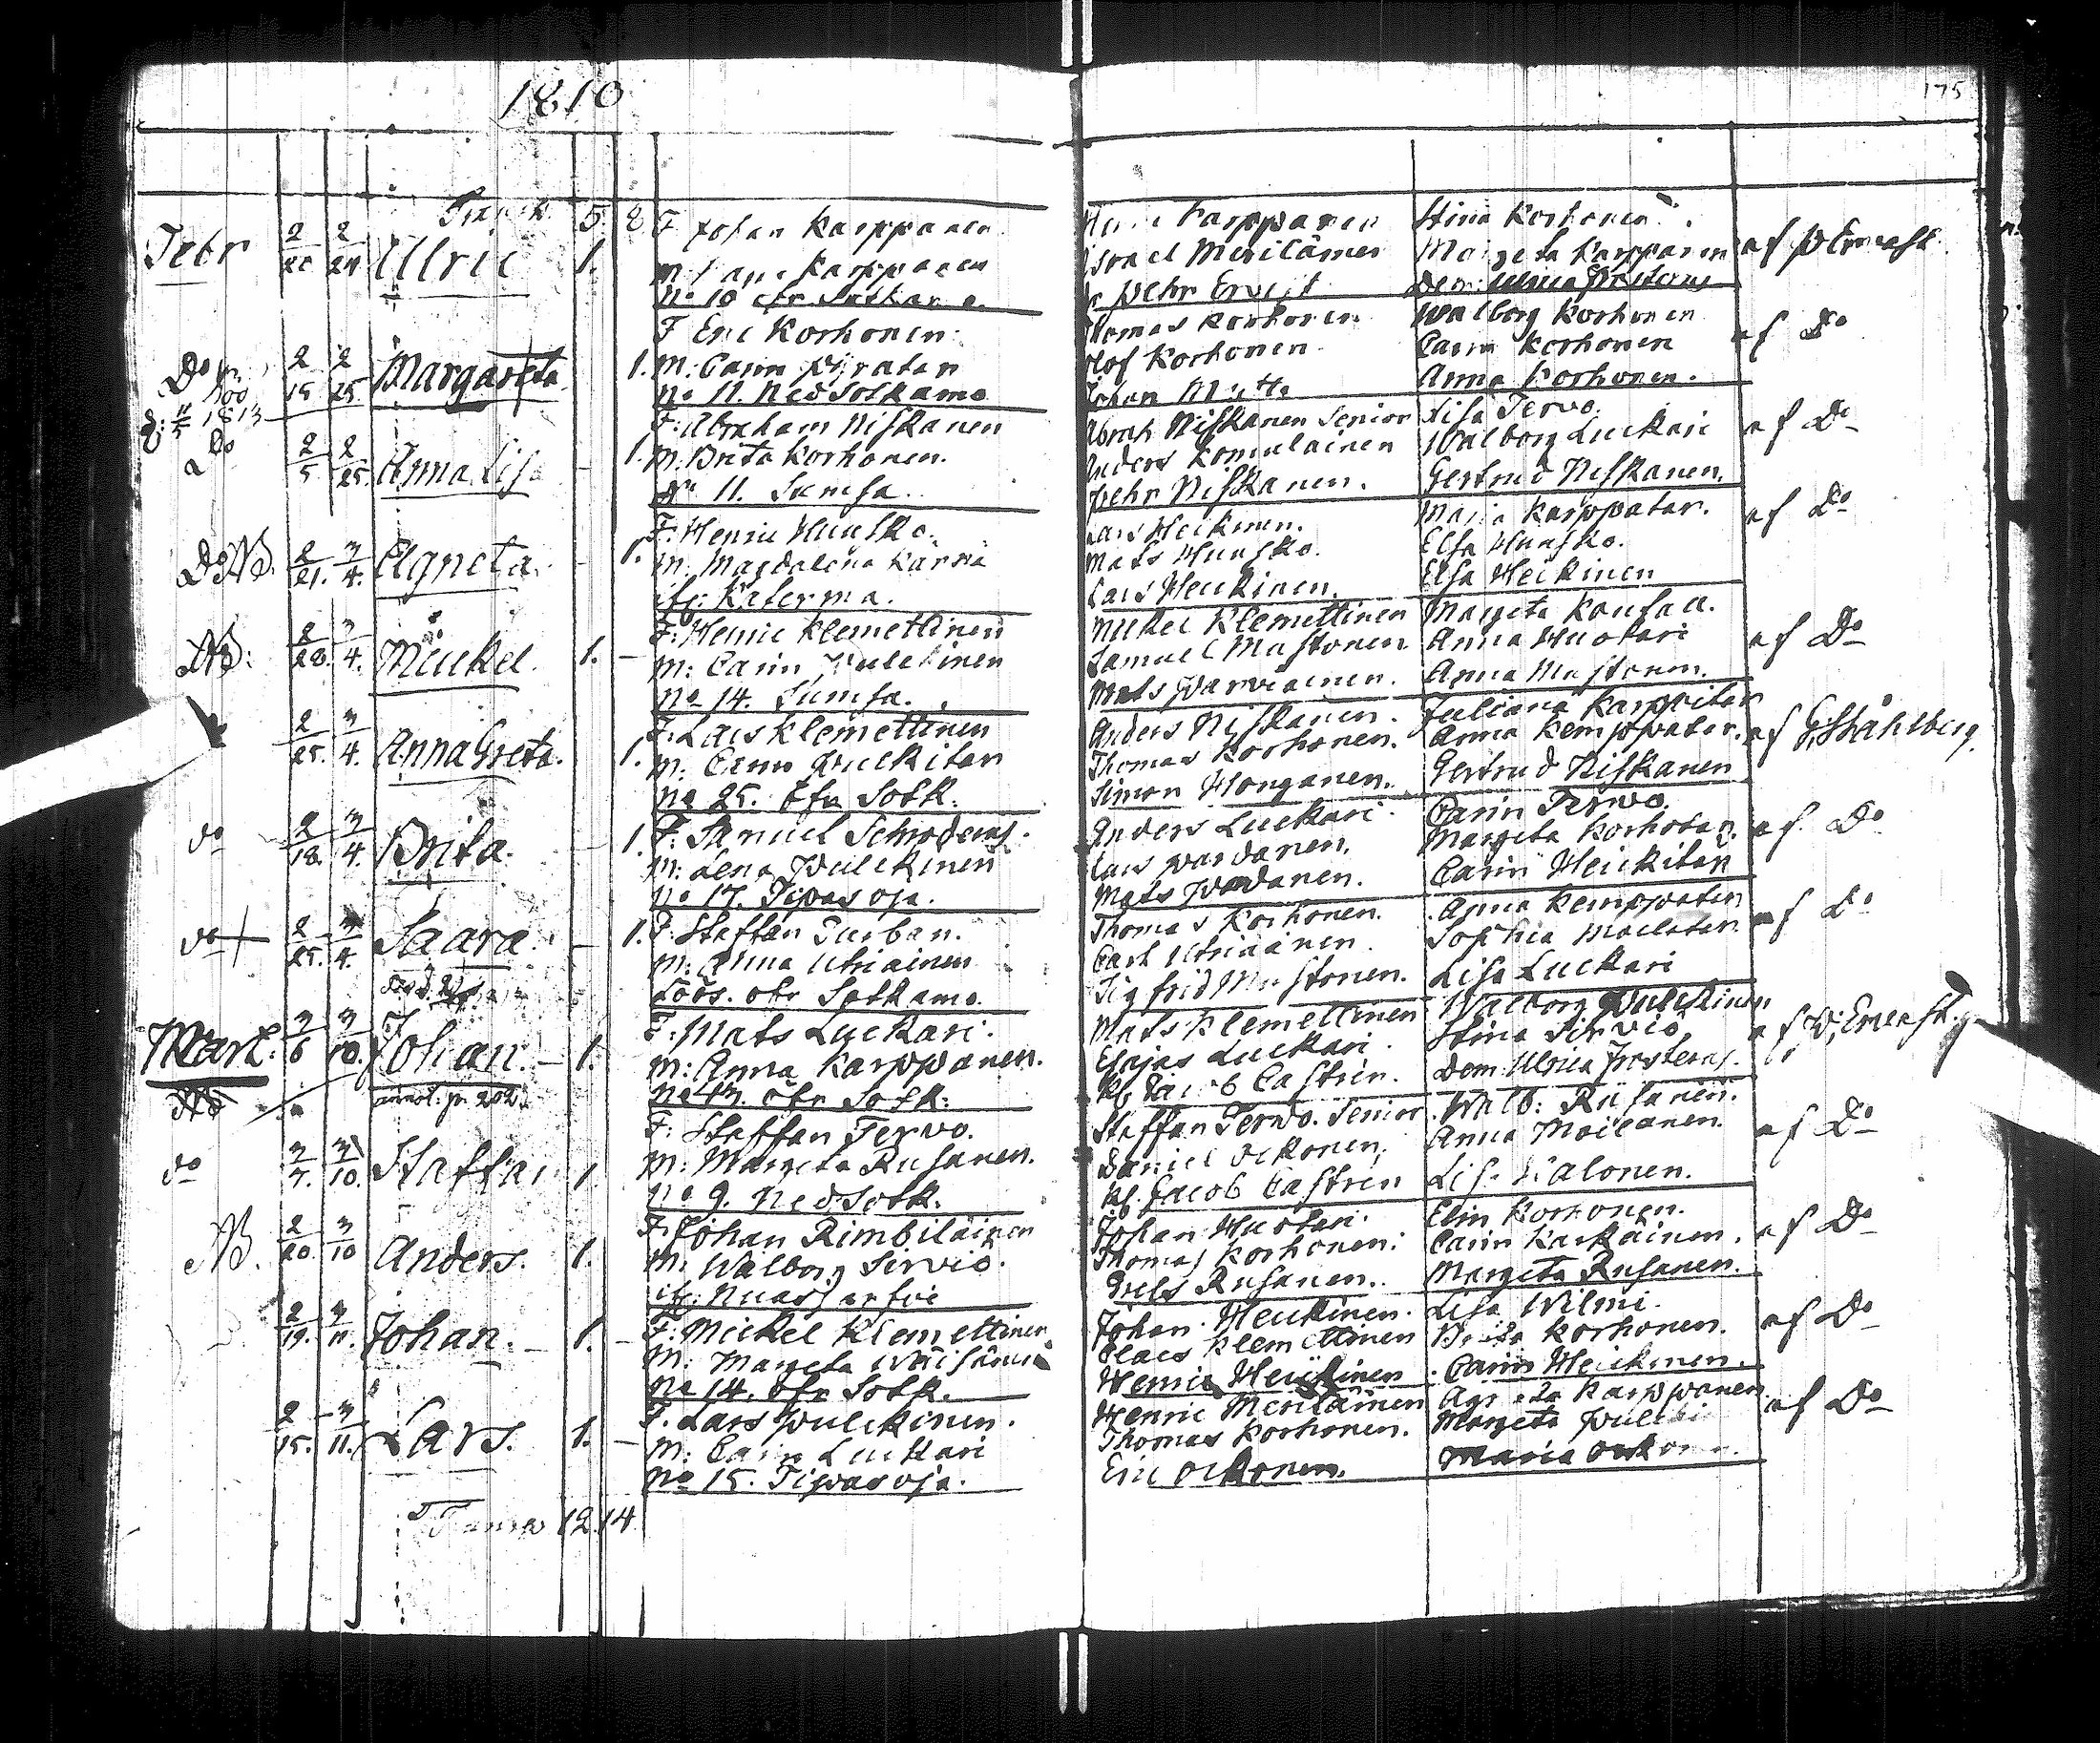 1810
175
Transp. 5. 8
Febr 2/20 2/24 Ulric 1.
F Johan Karppanen
M: Karppanen
No 10 ofr Sotkamo
Karppanen
Israel Meriläinen
Pehr Ervast
Stina Korhonen
Margeta Karppanen
Dem: Ulrica
af P Ervast
Do 2/15 2/25 Margareta 1.
d: 11/5 1813
F Eric Korhonen
M: Carin
No 11. Ned Sotkamo
Thomas Korhonen
Olof Korhonen
Johan
Walborg Korhonen
Carin Korhonen
Anna Korhonen.
af Do
Do 2/5 2/25 Anna Lisa - 1.
F: Abraham Niskanen
M: Brita Korhonen.
No 11. Sumsa.
Abrah Niskanen Senior
Anders Komulainen
Pehr Niskanen.
Lisa Tervo.
Walborg Luckari
Gertrud Niskanen.
af Do
Do NB. 2/21. 3/4. Agneta. - 1.
F: Henric Hunsko.
M: Magdalena Kärnä
itg: Katerma.
Lars Heickinen.
Mats Hunsko.
Lars Heickinen.
Maria Karppatar.
Elsa Hunsko.
Elsa Heickinen
af Do
NB: 2/28. 3/4. Mickel. 1. -
F: Henric Klemettinen
M: Carin Pulckinen
No 14. Sumsa.
Mickel Klemettinen
Samuel Mustonen
Mats Parviainen.
Margeta
Anna Huotari
Anna Mustonen.
af Do
2/25. 3/4. Anna Greta. 1.
F: Lars Klemettinen
M: Carin Pulckitar
No 25. Ofr Sotk.
Anders Niskanen.
Thomas Korhonen.
Simon Honganen.
Juliana Karppitar
Anna Kemppatar.
Gertrud Niskanen
af G: Ståhlberg.
do 2/18. 3/4. Brita. - 1.
F: Samuel Schroderus.
M: Lena Pulckinen
No 17. Tipasoja.
Anders Luckari.
Lars Pardanen.
Mats Pardanen.
Carin Tervo.
Margeta Korhotar.
Carin Heickitar
af Do
do + 2/25. 3/4. Saara. - 1.
F: Staffan Turban.
M: Anna Utriainen
Löös. ofr Sotkamo.
Thomas Korhonen.
Carl Utriainen.
Sigfrid Mustonen.
Anna Kemppatar
Sophia Moilatar.
Lisa Luckari
af Do
Mart. 3/6 3/10. Johan. - 1.
annot. p. 202.
F: Mats Luckari.
M: Anna Karppanen.
No 47. ofr Sotk.
Mats Klemettinen
Esajas Luckari.
Kl. Jacob Castrin.
Walborg Pulckinen
Stina Sirviö
Dem: Ulrica
af P; Ervast.
do 3/7. 3/10. Staffan 1.
F: Staffan Tervo.
M: Margeta Rusanen.
No 9. Ned Sotk.
Staffan Tervo. Senior
Daniel Ockonen,
Kl. Jacob Castren
Walb: Rusanen.
Anna Moilanen.
Lisa Halonen.
af Do
NB. 2/20. 3/10 Anders. 1.
F: Johan Rimbiläinen
M: Walborg Sirviö.
itg: Nuasjärfvi
Johan Huotari.
Thomas Korhonen.
Grels Rusanen.
Elin Korhonen.
Carin Karkäinen.
Margeta Rusanen.
af Do
2/19. 3/11. Johan. - 1. -
F: Mickel Klemettinen
M: Margeta Wäisänen
No 14. ofr Sotk.
Johan Heickinen.
Claes Klemettinen
Henric Heickinen
Lisa Wilmi.
Brita Korhonen.
Carin Heickinen.
af Do
2/15. 3/11. Lars. 1. -
F. Lars Pulckinen.
M: Carin Luckari
No 15. Tipasoja.
Henric Meriläinen
Thomas Korhonen.
Eric Ockonen.
Agneta Karppanen
Margeta
Maria
af Do
Transp 12. 14